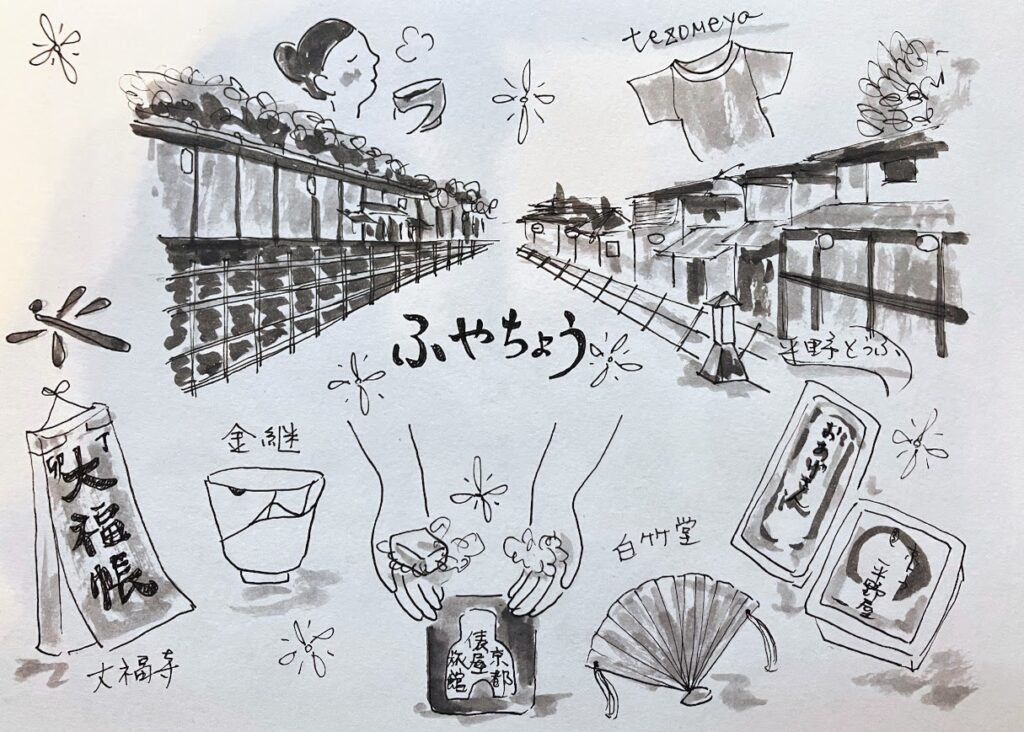 tezomeya
ふやちょう
平野とうふ
丁
卯
大福帳
大福寺
金継
京都
俵屋
旅館
白竹堂
おあげさん
平野屋